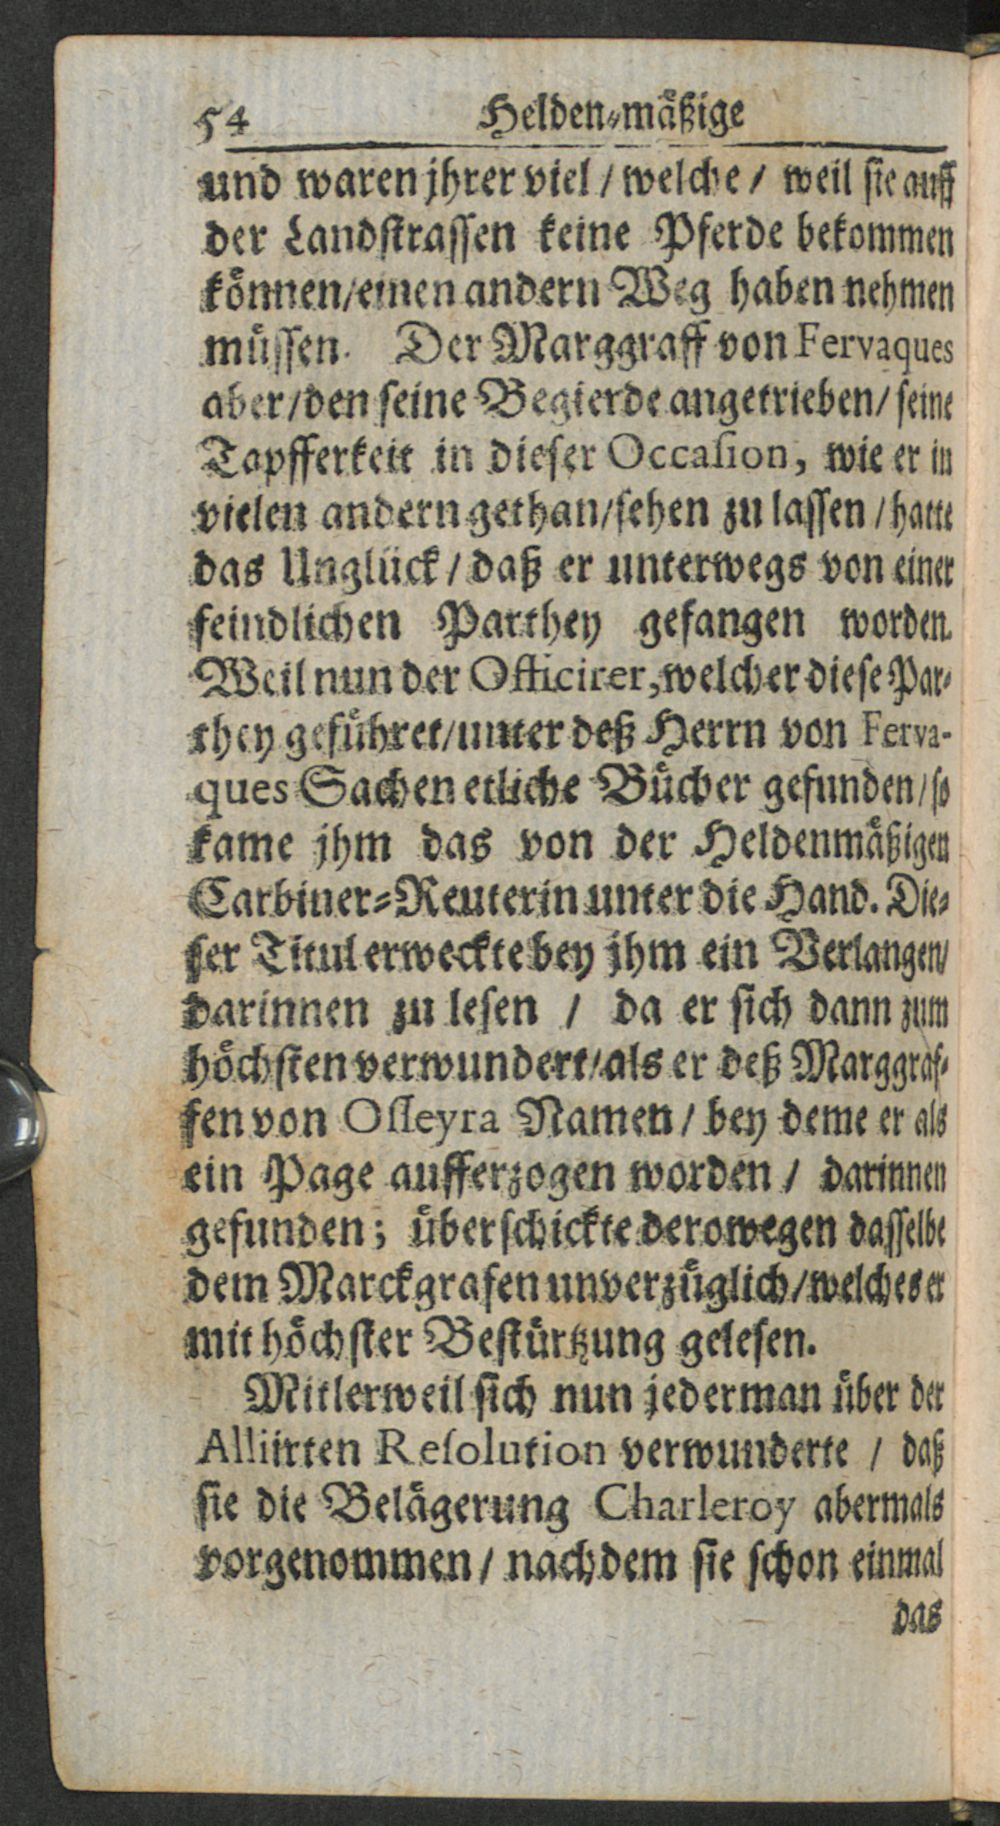 54 Helden-mäßige
und waren jhrer viel / welche / weil sie auff
der Landstrassen keine Pferde bekommen
können/einen andern Weg haben nehmen
müssen. Der Marggraff von Fervaques
aber/den seine Begierde angetrieben/ seine
Tapfferkeit in dieser Occasion, wie er in
vielen andern gethan/sehen zu lassen / hatte
das Unglück / daß er unterwegs von einer
feindlichen Parthey gefangen worden.
Weil nun der Officirer, welcher diese Par-
they geführet/unter deß Herrn von Ferva-
ques Sachen etliche Bücher gefunden/ so
kame jhm das von der Heldenmäßigen
Carbiner-Reuterin unter die Hand. Die-
ser Titul erweckte bey jhm ein Verlangen/
darinnen zu lesen / da er sich dann zum
höchsten verwundert/als er deß Marggraf-
fen von Osseyra Namen / bey deme er als
ein Page aufferzogen worden / darinnen
gefunden; überschickte derowegen dasselbe
dem Marckgrafen unverzüglich/welches er
mit höchster Bestürtzung gelesen.
Mitlerweil sich nun jederman über der
Alliirten Resolution verwunderte / daß
sie die Belägerung Charleroy abermals
vorgenommen / nachdem sie schon einmal
das